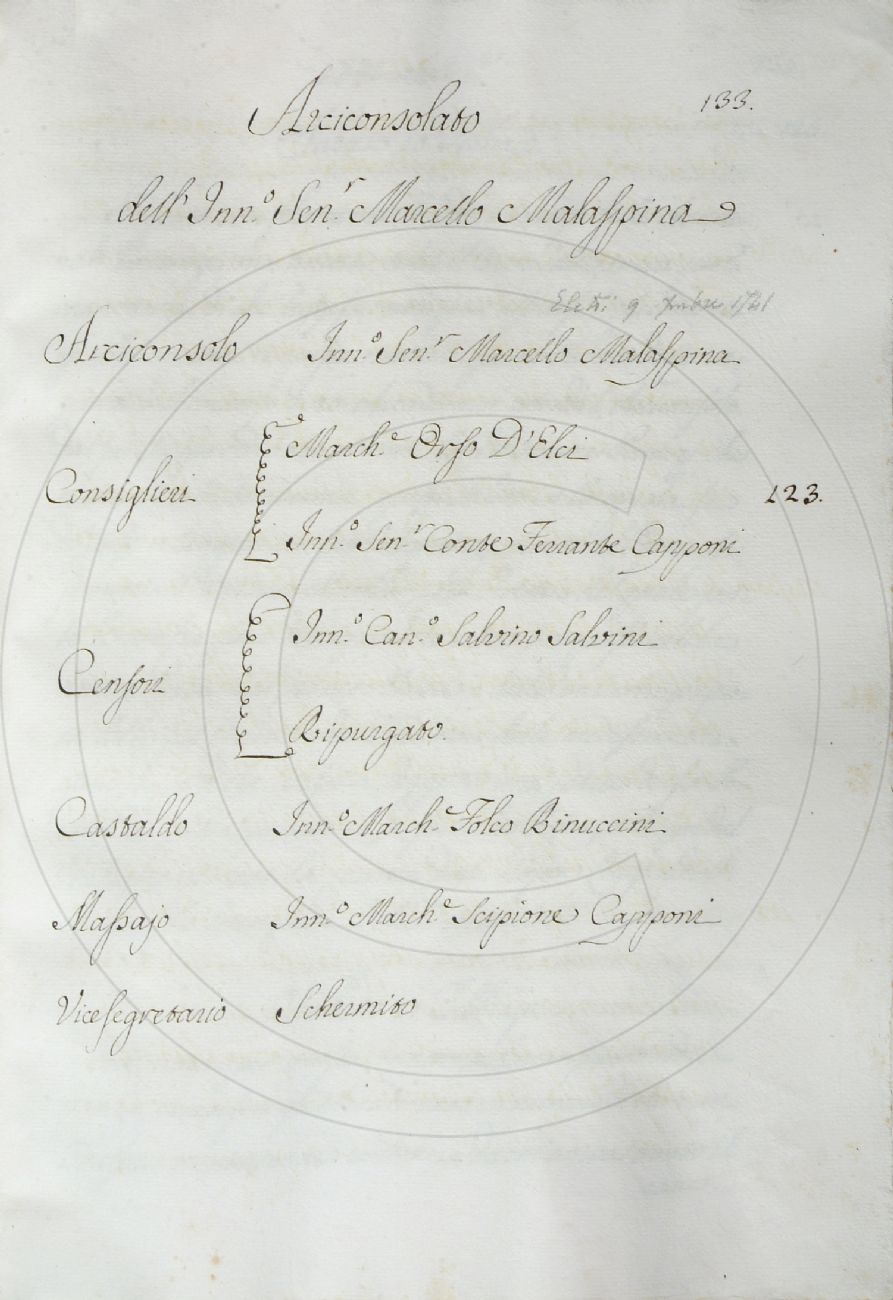 133.
Arciconsolato
dell' Inn.º Sen.r Marcello Malaspina
Eletti 9 1741
Arciconsolo Inn.º Sen.r Marcello Malaspina
March.e Orso D'Elci
Consiglieri 123.
Inn.º Sen.r Conte Ferrante Capponi
Inn.º Can.º Salvino Salvini
Censori
Ripurgato.
Castaldo Inn.º March.e Folco Rinuccini
Massajo Inn.º March.e Scipione Capponi
Vicesegretario Schermito